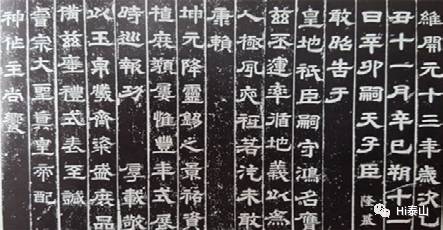 維開元十三年歲次乙
丑十一月辛巳朔十一
日辛卯嗣天子臣隆基
敢昭告于
皇地祇臣嗣守鴻名膺
茲丕運率循地義以為
人極夙夜祗若汔未敢
康賴
坤元降靈錫之景祐資
植庶類屢惟豐年式展
時巡報功 厚載敬
以玉帛犧齊粢盛庶品
備茲瘞禮式表至誠
睿宗大聖真皇帝配
神作主尚饗
Hi泰山